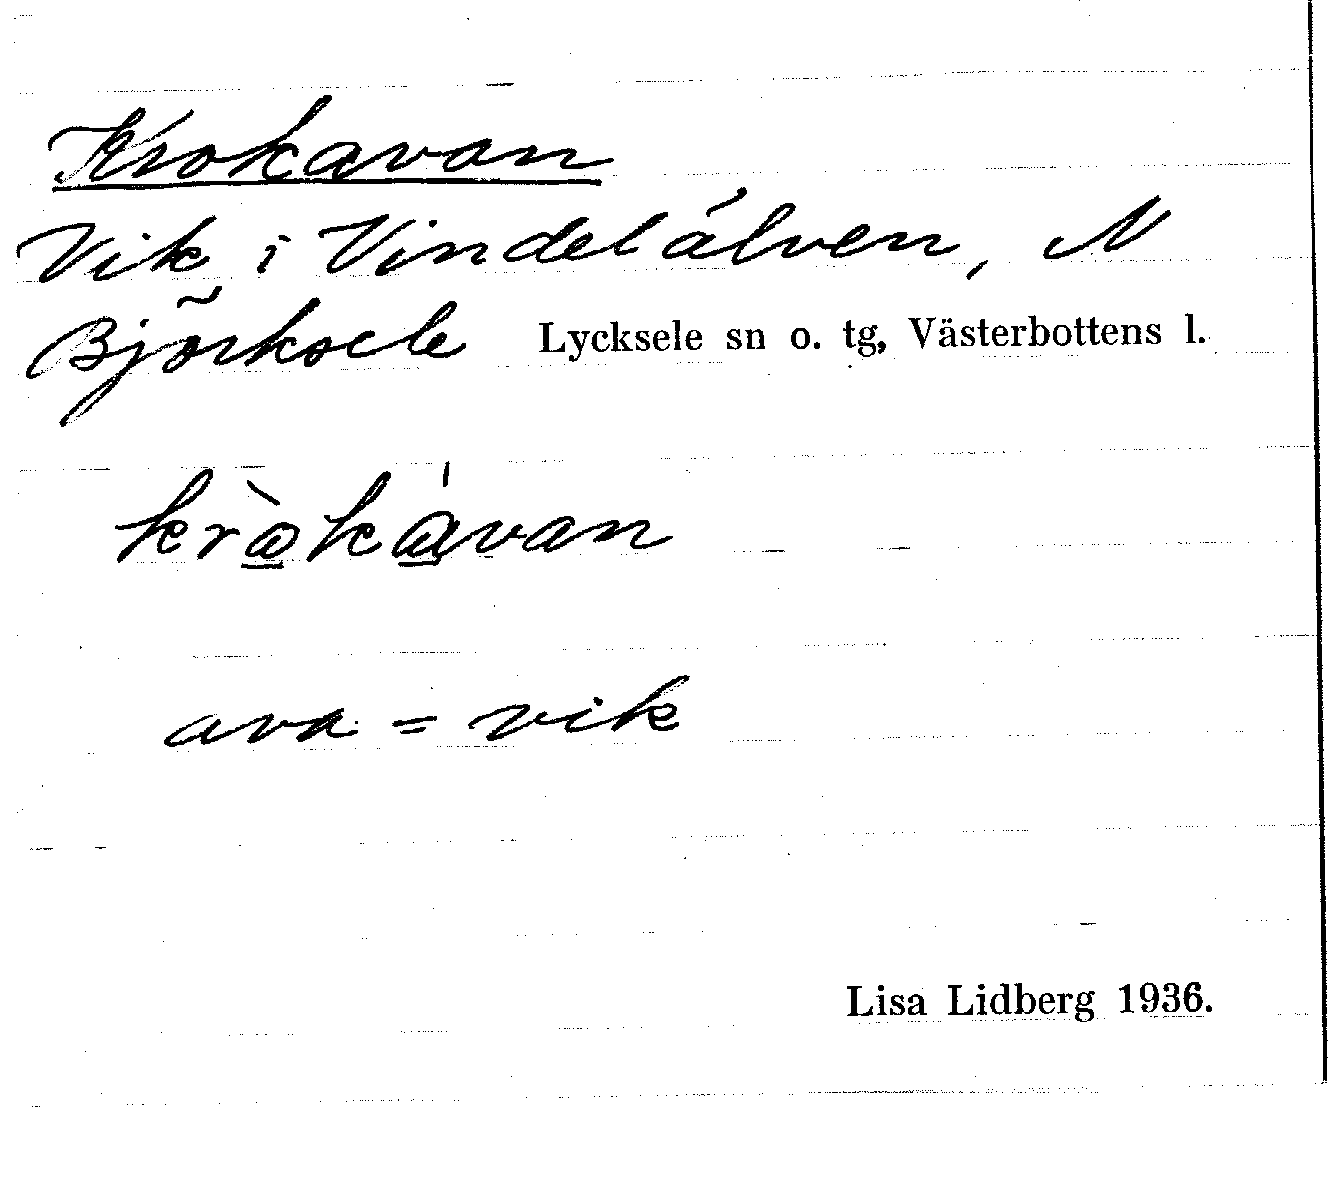 Krokavan
Vik i Vindelälven, N
Björksele Lycksele sn o. tg, Västerbottens l.
kròkávan
ava = vik
Lisa Lidberg 1936.